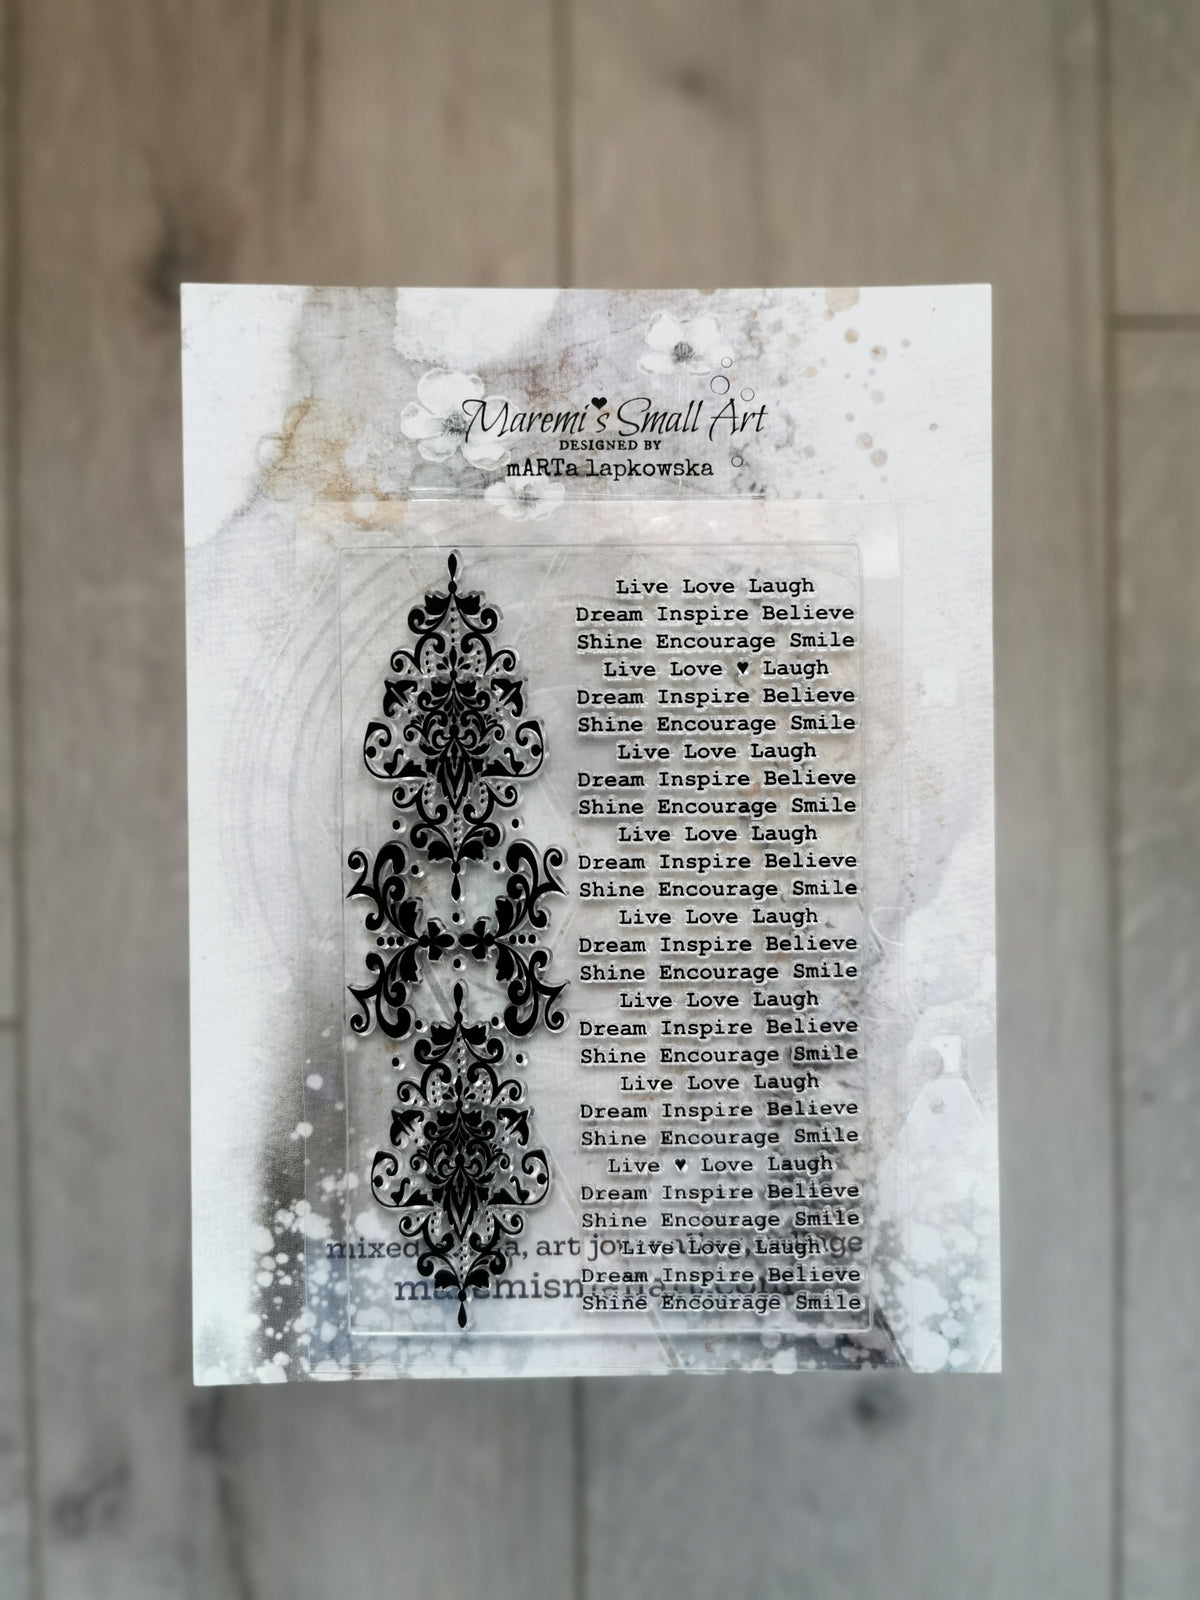 Maremi's Small Art
DESIGNED BY
mARTa lapkowska
Live Love Laugh
Dream Inspire Believe
Shine Encourage Smile
Live Love ♥ Laugh
Dream Inspire Believe
Shine Encourage Smile
Live Love Laugh
Dream Inspire Believe
Shine Encourage Smile
Live Love Laugh
Dream Inspire Believe
Shine Encourage Smile
Live Love Laugh
Dream Inspire Believe
Shine Encourage Smile
Live Love Laugh
Dream Inspire Believe
Shine Encourage Smile
Live Love Laugh
Dream Inspire Believe
Shine Encourage Smile
Live ♥ Love Laugh
Dream Inspire Believe
Shine Encourage Smile
Live Love Laugh
Dream Inspire Believe
Shine Encourage Smile
mixed art